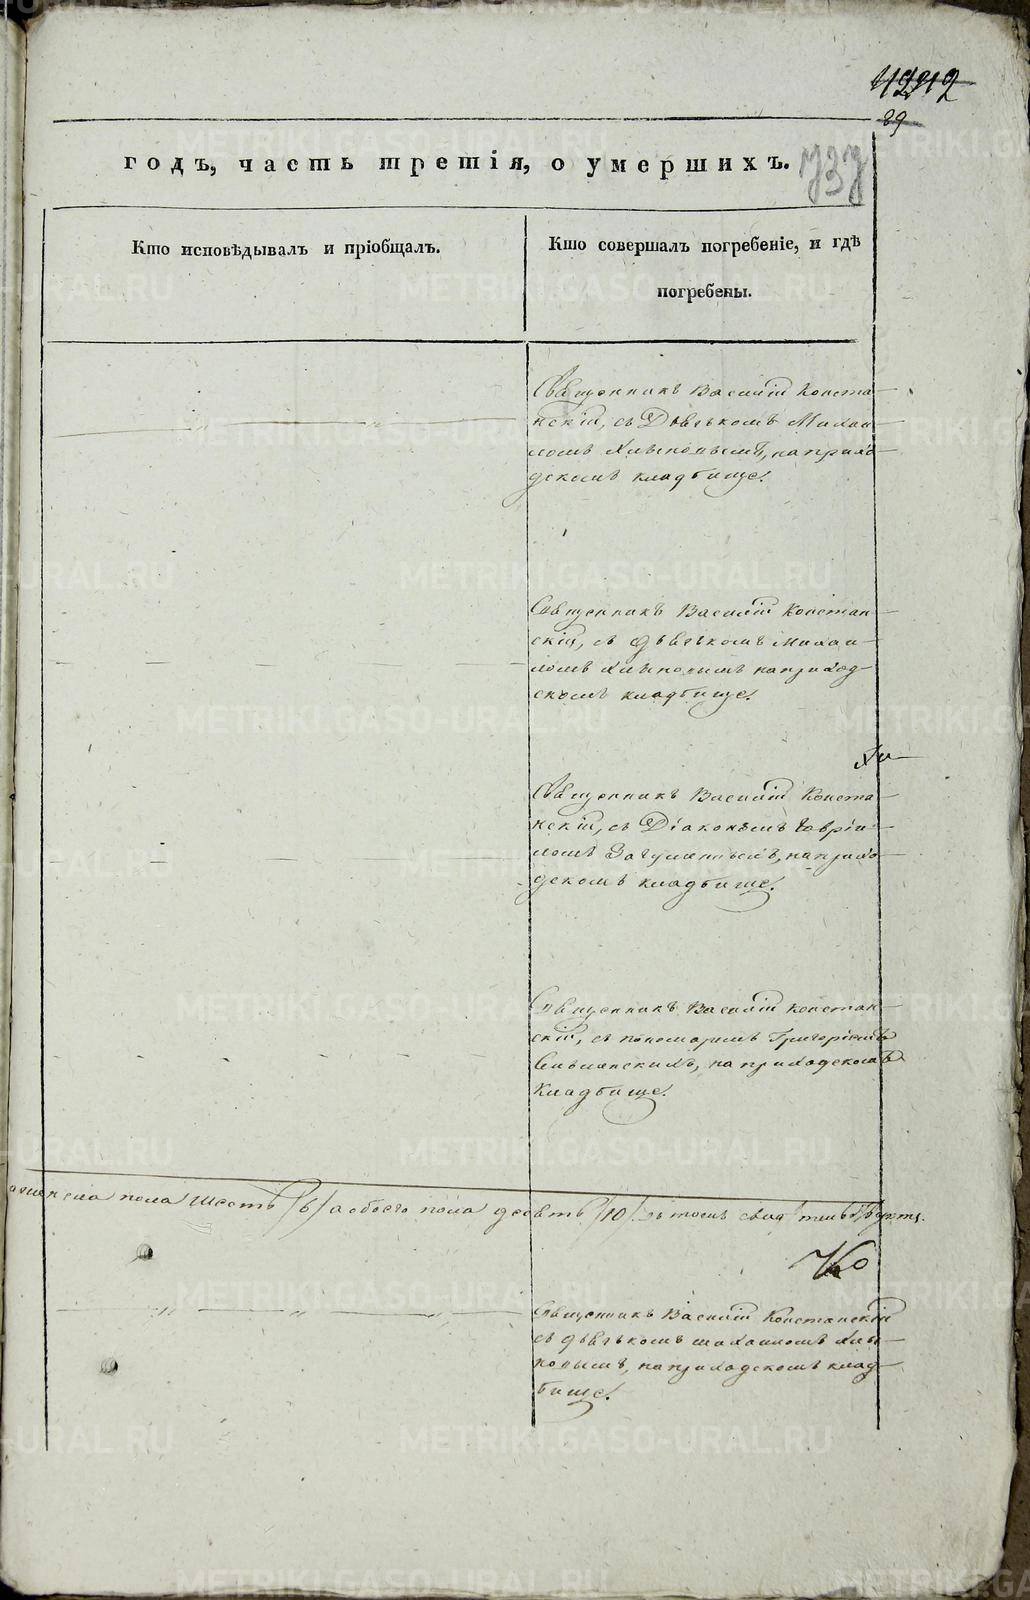 годъ, часть третія, о умершихъ.
737
89
Кто исповѣдывалъ и пріобщалъ.
Кто совершалъ погребеніе, и гдѣ
погребены.
Священникъ Василій Конста-
нскій, съ Дьячькомъ Михаи-
ломъ на прихо-
дскомъ кладбище.
Священникъ Василій Констан-
скій, съ дьячькомъ Михаи-
ломъ на приход-
скомъ кладбище.
Священникъ Василій Конста-
нскій, съ Діакономъ Гаврiи-
ломъ на прихо-
дскомъ кладбище.
Священникъ Василій Констан-
скій, съ пономаремъ Григоріемъ
на приходскомъ
кладбище.
женска пола шесть /6/ а обоего пола десять /10/. въ томъ
Священникъ Василій Констанскій
съ дьячькомъ михаиломъ
на приходскомъ клад-
бище.
METRIKI.GASO-URAL.RU